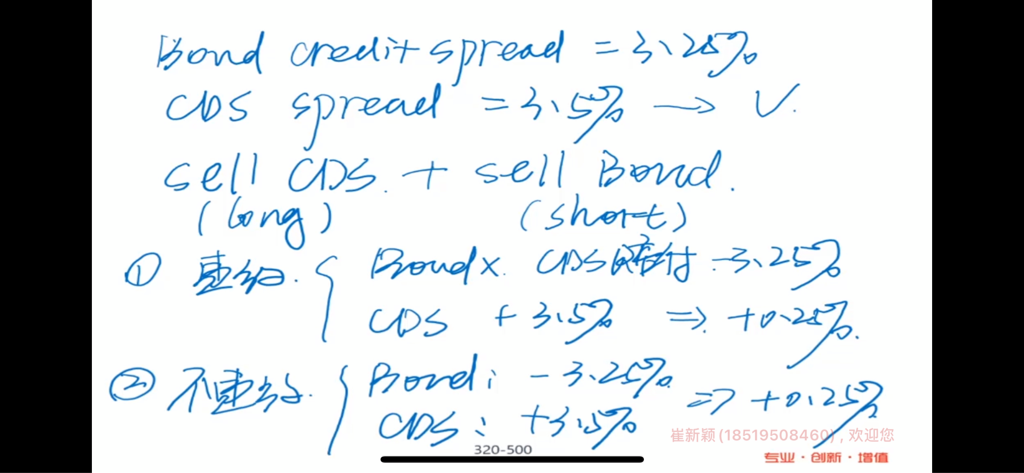 Bond credit spread = 3.25%
CDS spread = 3.5% → √.
sell CDS. + sell Bond.
(long) (short)
① 违约. { Bond x. CDS赔付 -3.25%
CDS + 3.5% ⇒ +0.25%.
② 不违约. { Bond: -3.25%
CDS: +3.5% ⇒ +0.25%
崔新颖(18519508460), 欢迎您
320-500
专业·创新·增值